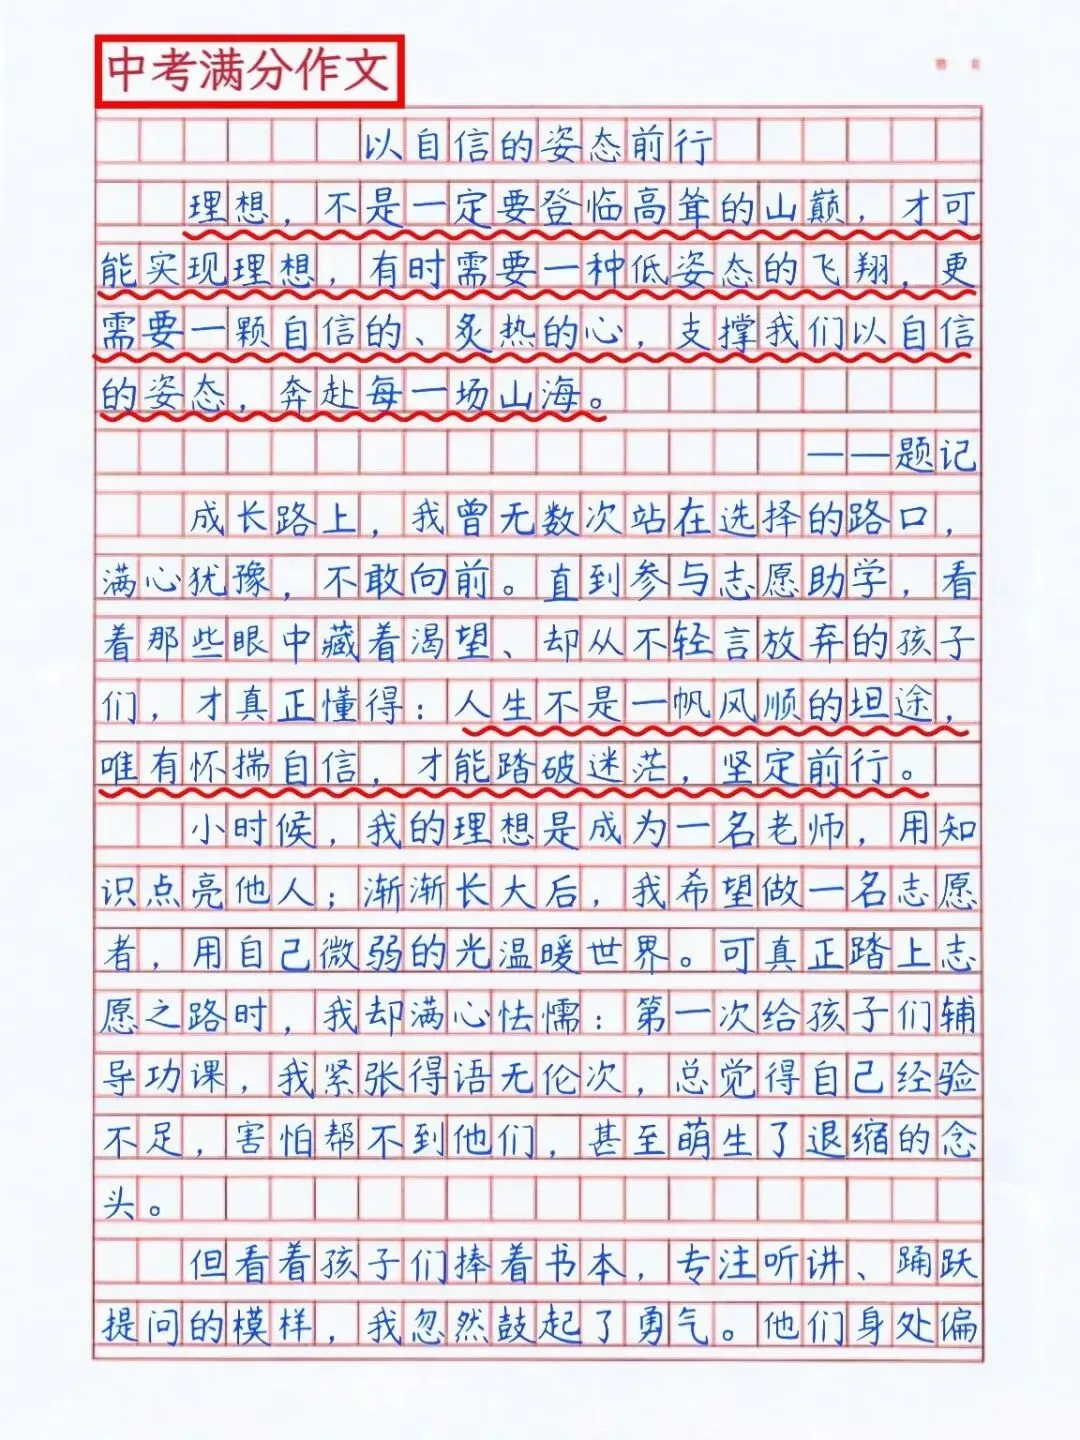 中考满分作文
以自信的姿态前行
理想，不是一定要登临高耸的山巅，才可
能实现理想，有时需要一种低姿态的飞翔，更
需要一颗自信的、炙热的心，支撑我们以自信
的姿态，奔赴每一场山海。
——题记
成长路上，我曾无数次站在选择的路口，
满心犹豫，不敢向前。直到参与志愿助学，看
着那些眼中藏着渴望、却从不轻言放弃的孩子
们，才真正懂得：人生不是一帆风顺的坦途，
唯有怀揣自信，才能踏破迷茫，坚定前行。
小时候，我的理想是成为一名老师，用知
识点亮他人；渐渐长大后，我希望做一名志愿
者，用自己微弱的光温暖世界。可真正踏上志
愿之路时，我却满心怯懦：第一次给孩子们辅
导功课，我紧张得语无伦次，总觉得自己经验
不足，害怕帮不到他们，甚至萌生了退缩的念
头。
但看着孩子们捧着书本，专注听讲、踊跃
提问的模样，我忽然鼓起了勇气。他们身处偏